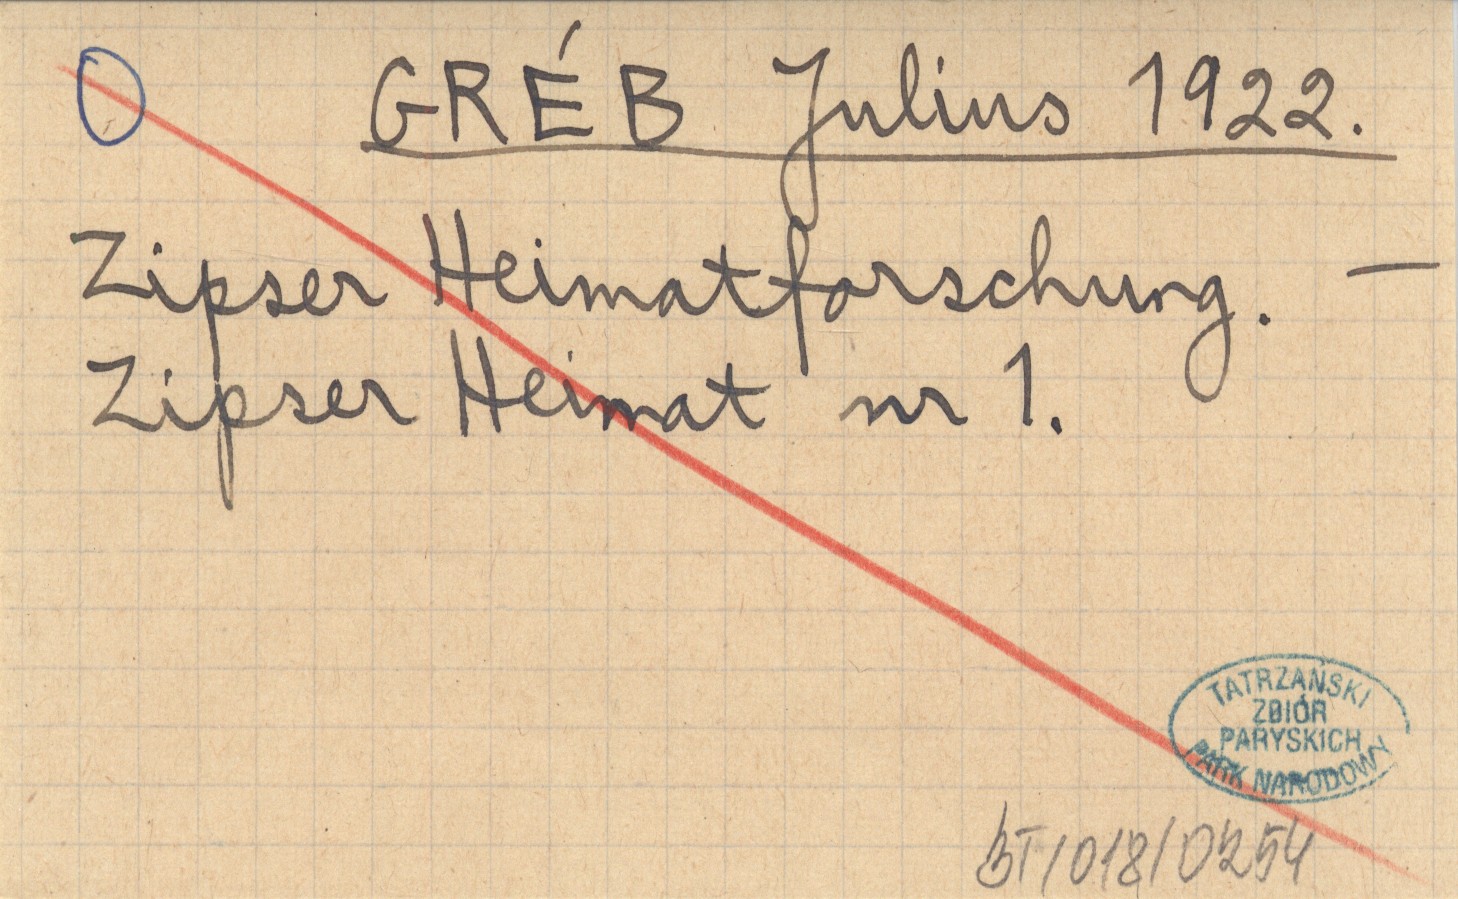 GRÉB Julius 1922.
Zipser Heimatforschung. —
Zipser Heimat nr 1.
TATRZAŃSKI
ZBIÓR
PARYSKICH
PARK NARODOWY
BT/018/0254